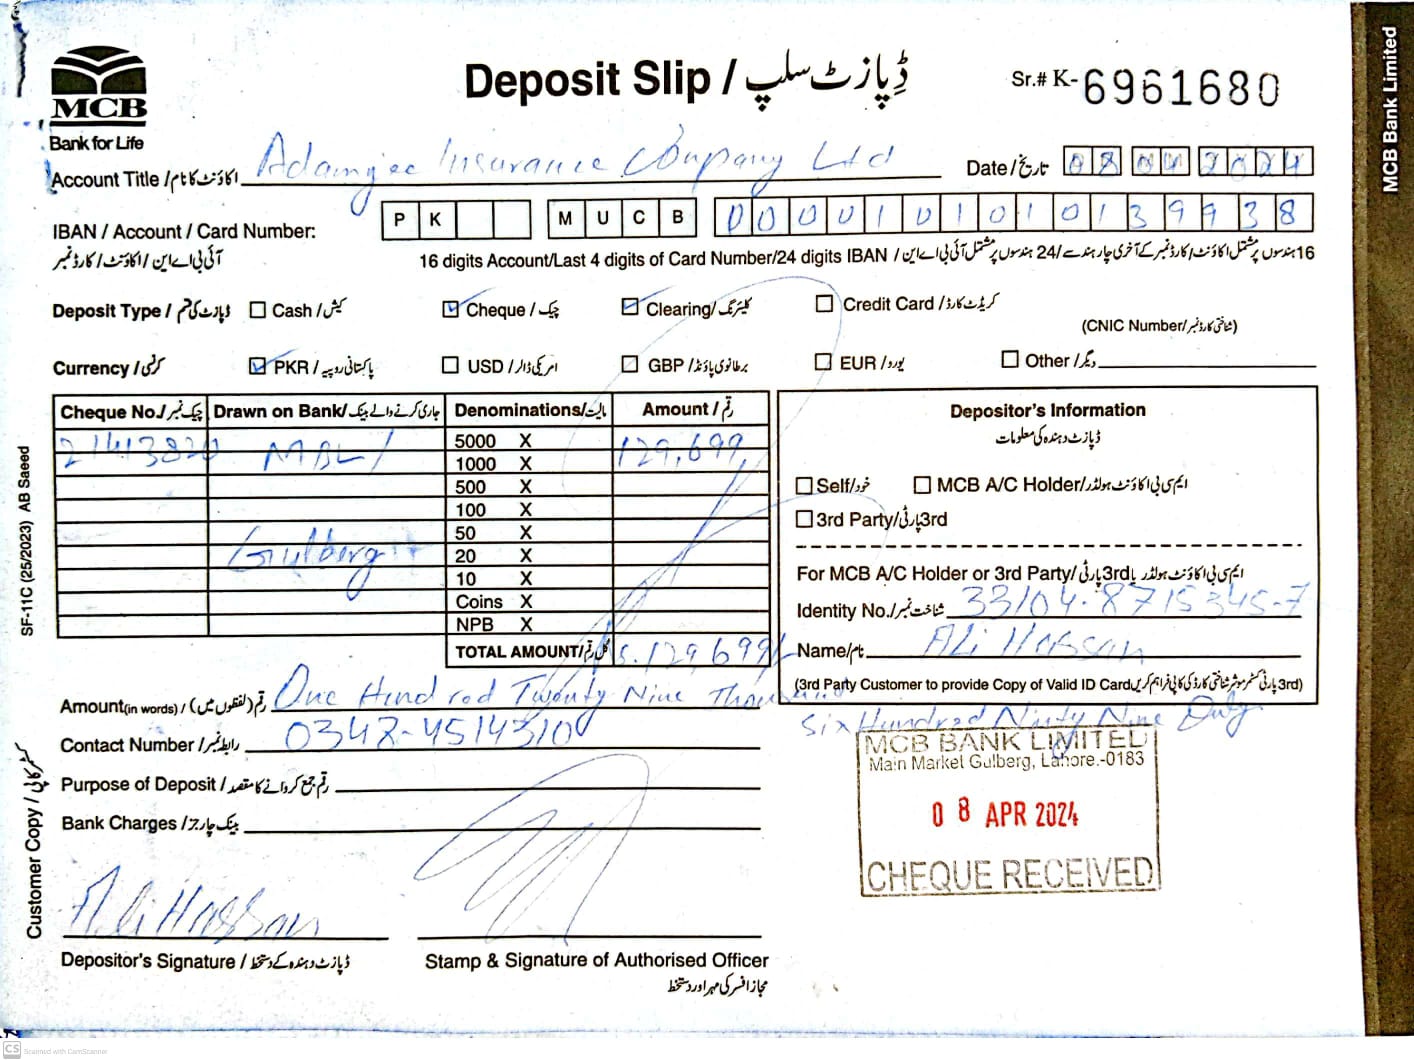 MCB
Bank for Life
Deposit Slip / ڈپازٹ سلپ
Sr.# K-6961680
MCB Bank Limited
Account Title / اکاؤنٹ کا نام Adamjee Insurance Company Ltd
Date / تاریخ 08 04 2024
IBAN / Account / Card Number: PK MUCB 0000101010139938
آئی بی اے این / اکاؤنٹ / کارڈ نمبر
16 digits Account/Last 4 digits of Card Number/24 digits IBAN / 16 ہندسوں پر مشتمل اکاؤنٹ/کارڈ نمبر کے آخری چار ہندسے/24 ہندسوں پر مشتمل آئی بی اے این
Deposit Type / ڈپازٹ کی قسم Cash / کیش Cheque / چیک Clearing / کلیئرنگ Credit Card / کریڈٹ کارڈ
(CNIC Number/شناختی کارڈ نمبر)
Currency / کرنسی PKR / پاکستانی روپیہ USD / امریکی ڈالر GBP / برطانوی پاؤنڈ EUR / یورو Other / دیگر
Cheque No./ چیک نمبر Drawn on Bank/ جاری کرنے والے بینک Denominations/ مالیت Amount / رقم
MBL/ 5000 X 129,699
1000 X
500 X
100 X
50 X
Gulberg 20 X
10 X
Coins X
NPB X
TOTAL AMOUNT/ کل رقم Rs. 129,699/-
Depositor's Information
ڈپازٹ دہندہ کی معلومات
Self/خود MCB A/C Holder/ ایم سی بی اکاؤنٹ ہولڈر
3rd Party/ 3rd پارٹی
For MCB A/C Holder or 3rd Party/ ایم سی بی اکاؤنٹ ہولڈر یا 3rd پارٹی
Identity No./ شناخت نمبر 33104-8715345-7
Name/ نام Ali Hassan
(3rd Party Customer to provide Copy of Valid ID Card/ 3rd پارٹی کسٹمر مؤثر شناختی کارڈ کی کاپی فراہم کریں)
Amount(in words) / رقم (لفظوں میں) One Hundred Twenty Nine Thousand
Six Hundred Ninty Nine Only
Contact Number / رابطہ نمبر 0342-4514310
Purpose of Deposit / رقم جمع کروانے کا مقصد
Bank Charges / بینک چارجز
MCB BANK LIMITED
Main Market Gulberg, Lahore.-0183
08 APR 2024
CHEQUE RECEIVED
Ali Hassan
Depositor's Signature / ڈپازٹ دہندہ کے دستخط
Stamp & Signature of Authorised Officer
مجاز افسر کی مہر اور دستخط
SF-11C (25/2023) AB Saeed
Customer Copy / کسٹمر کاپی
CS Scanned with CamScanner